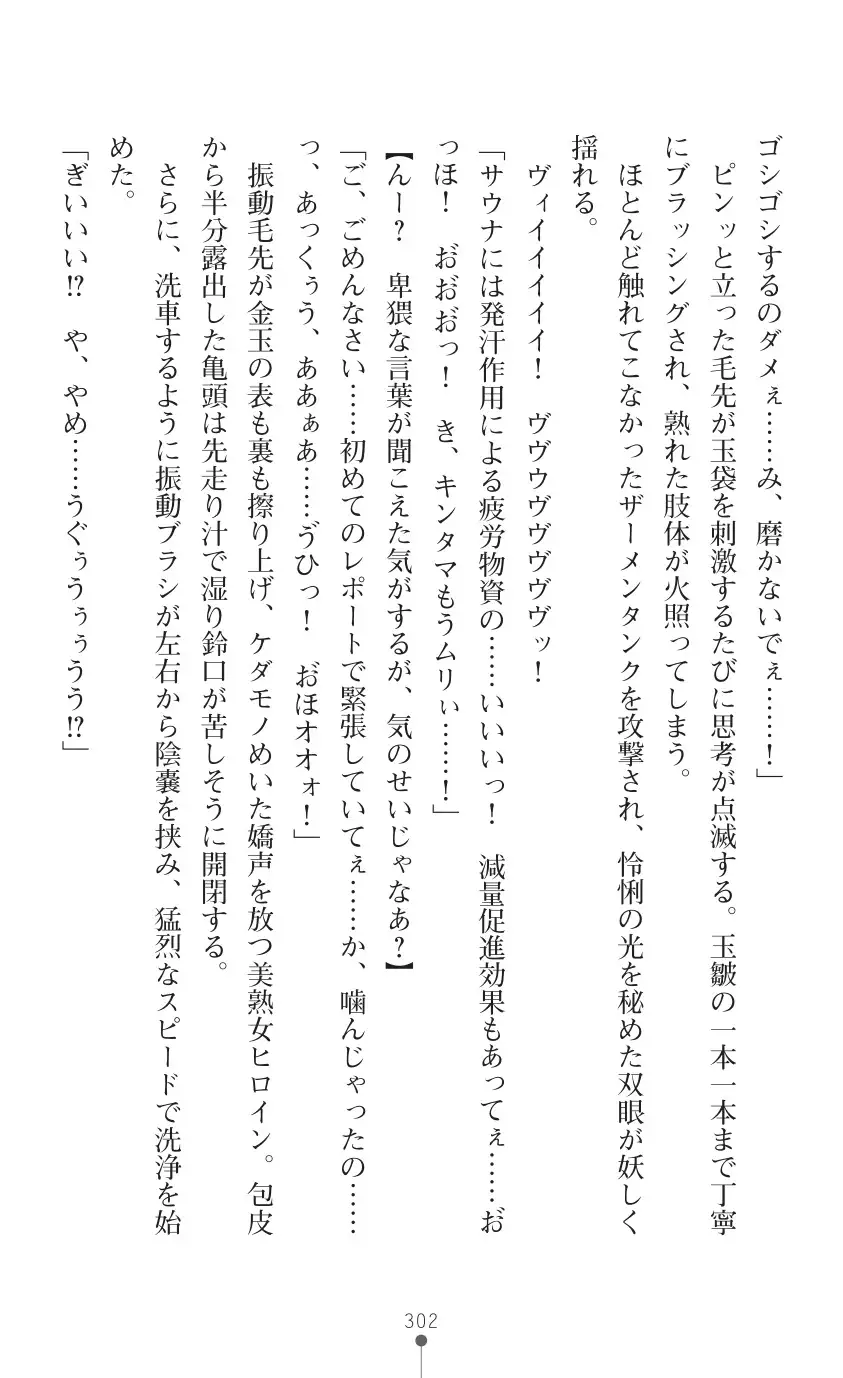 ゴシゴシするのダメぇ……み、磨かないでぇ……！」
　ピンッと立った毛先が玉袋を刺激するたびに思考が点滅する。玉皺の一本一本まで丁寧
にブラッシングされ、熟れた肢体が火照ってしまう。
　ほとんど触れてこなかったザーメンタンクを攻撃され、怜悧の光を秘めた双眼が妖しく
揺れる。
　ヴィイイイイイ！　ヴヴウヴヴヴヴヴッ！
「サウナには発汗作用による疲労物資の……いいいっ！　減量促進効果もあってぇ……お゛
っほ！　お゛お゛お゛っ！　き、キンタマもうムリぃ……！」
【んー？　卑猥な言葉が聞こえた気がするが、気のせいじゃなあ？】
「ご、ごめんなさい……初めてのレポートで緊張していてぇ……か、噛んじゃったの……
っ、あっくぅう、ああぁあ……ゔひっ！　お゛ほオオォ！」
　振動毛先が金玉の表も裏も擦り上げ、ケダモノめいた嬌声を放つ美熟女ヒロイン。包皮
から半分露出した亀頭は先走り汁で湿り鈴口が苦しそうに開閉する。
　さらに、洗車するように振動ブラシが左右から陰嚢を挟み、猛烈なスピードで洗浄を始
めた。
「ぎいいい!?　や、やめ……うぐぅうぅぅうう!?」
302